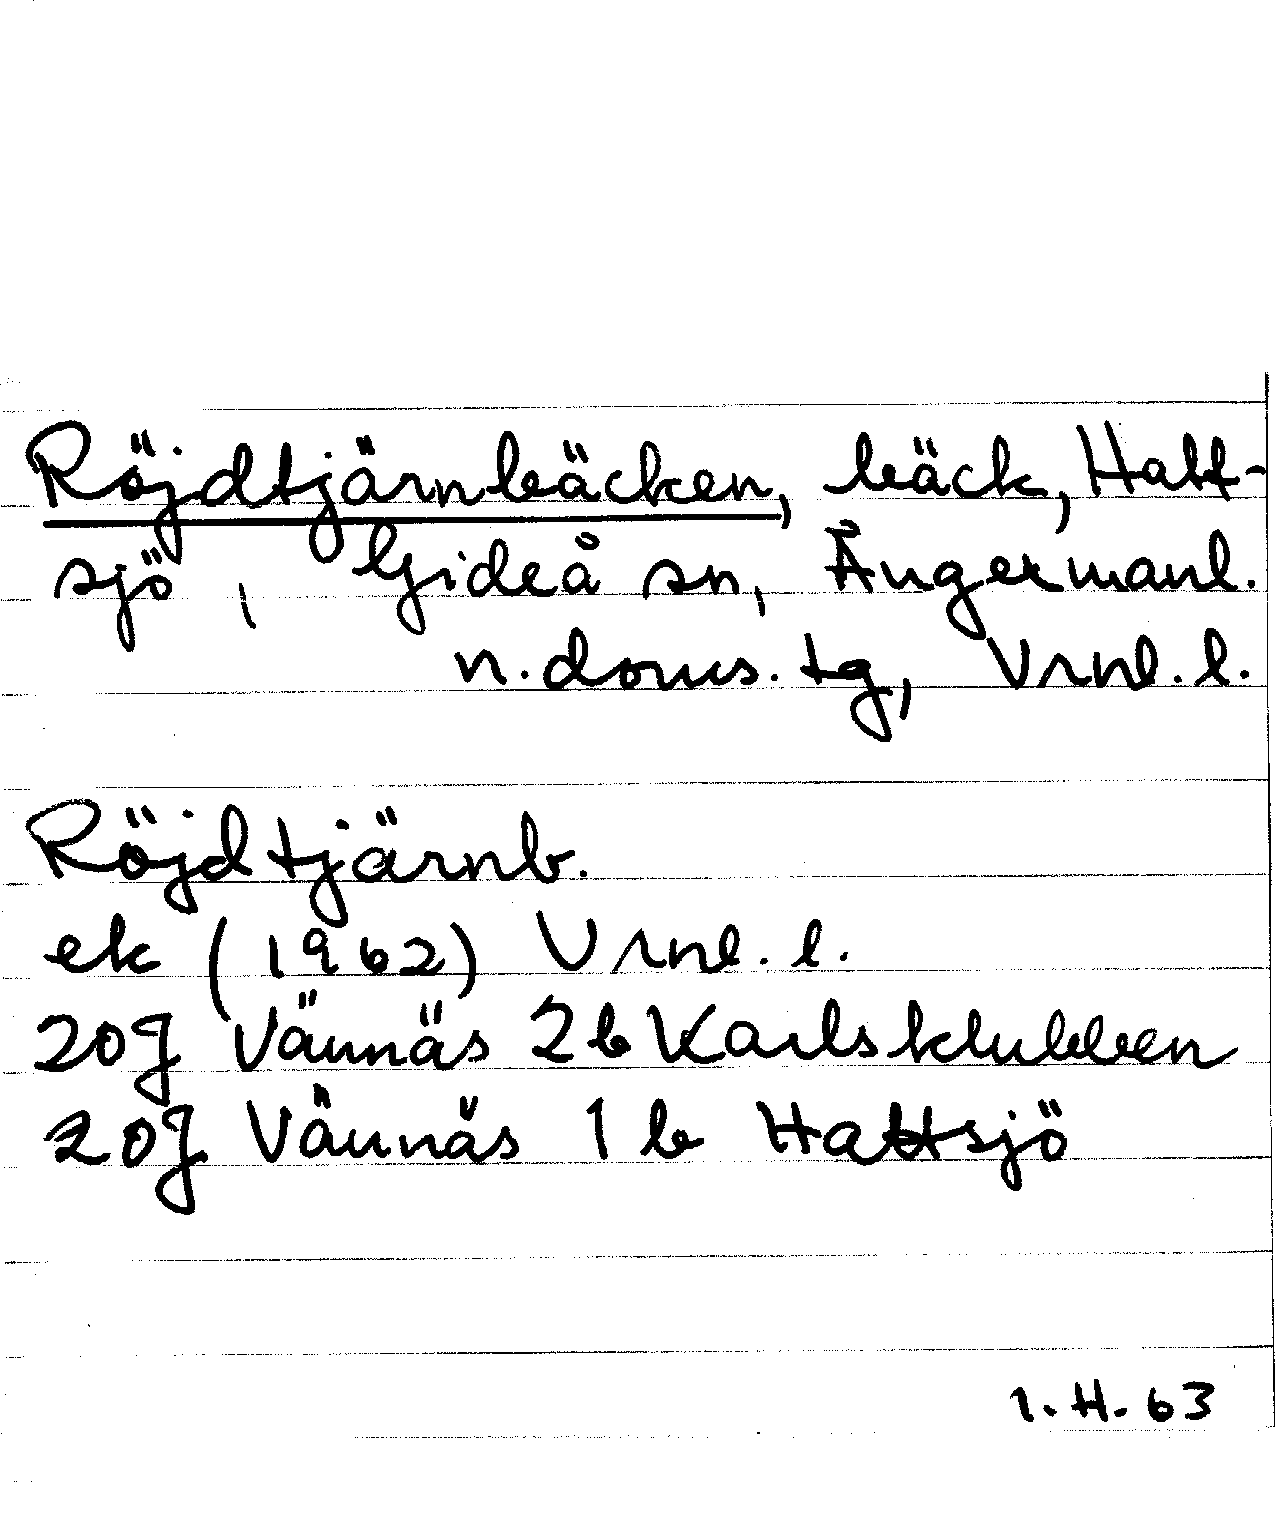 Röjdtjärnbäcken, bäck, Hatt-
sjö, Gideå sn, Ångermanl.
n. doms. tg, Vrnl. l.
Röjdtjärnb.
ek (1962) Vrnl. l.
20J Vännäs 2b Karlsklubben
20J Vännäs 1b Hattsjö
1. H. 63